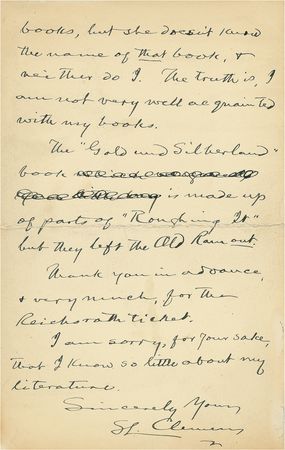 books, but she doesn't know
the name of that book, &
neither do I. The truth is, I
am not very well acquainted
with my books.
The "Gold und Silberland"
book
is made up
of parts of "Roughing It"
but they left the Old Ram out.
Thank you in advance,
& very much, for the
Reichsrath ticket.
I am sorry, for your sake,
that I know so little about my
literature.
Sincerely Yours
SL. Clemens